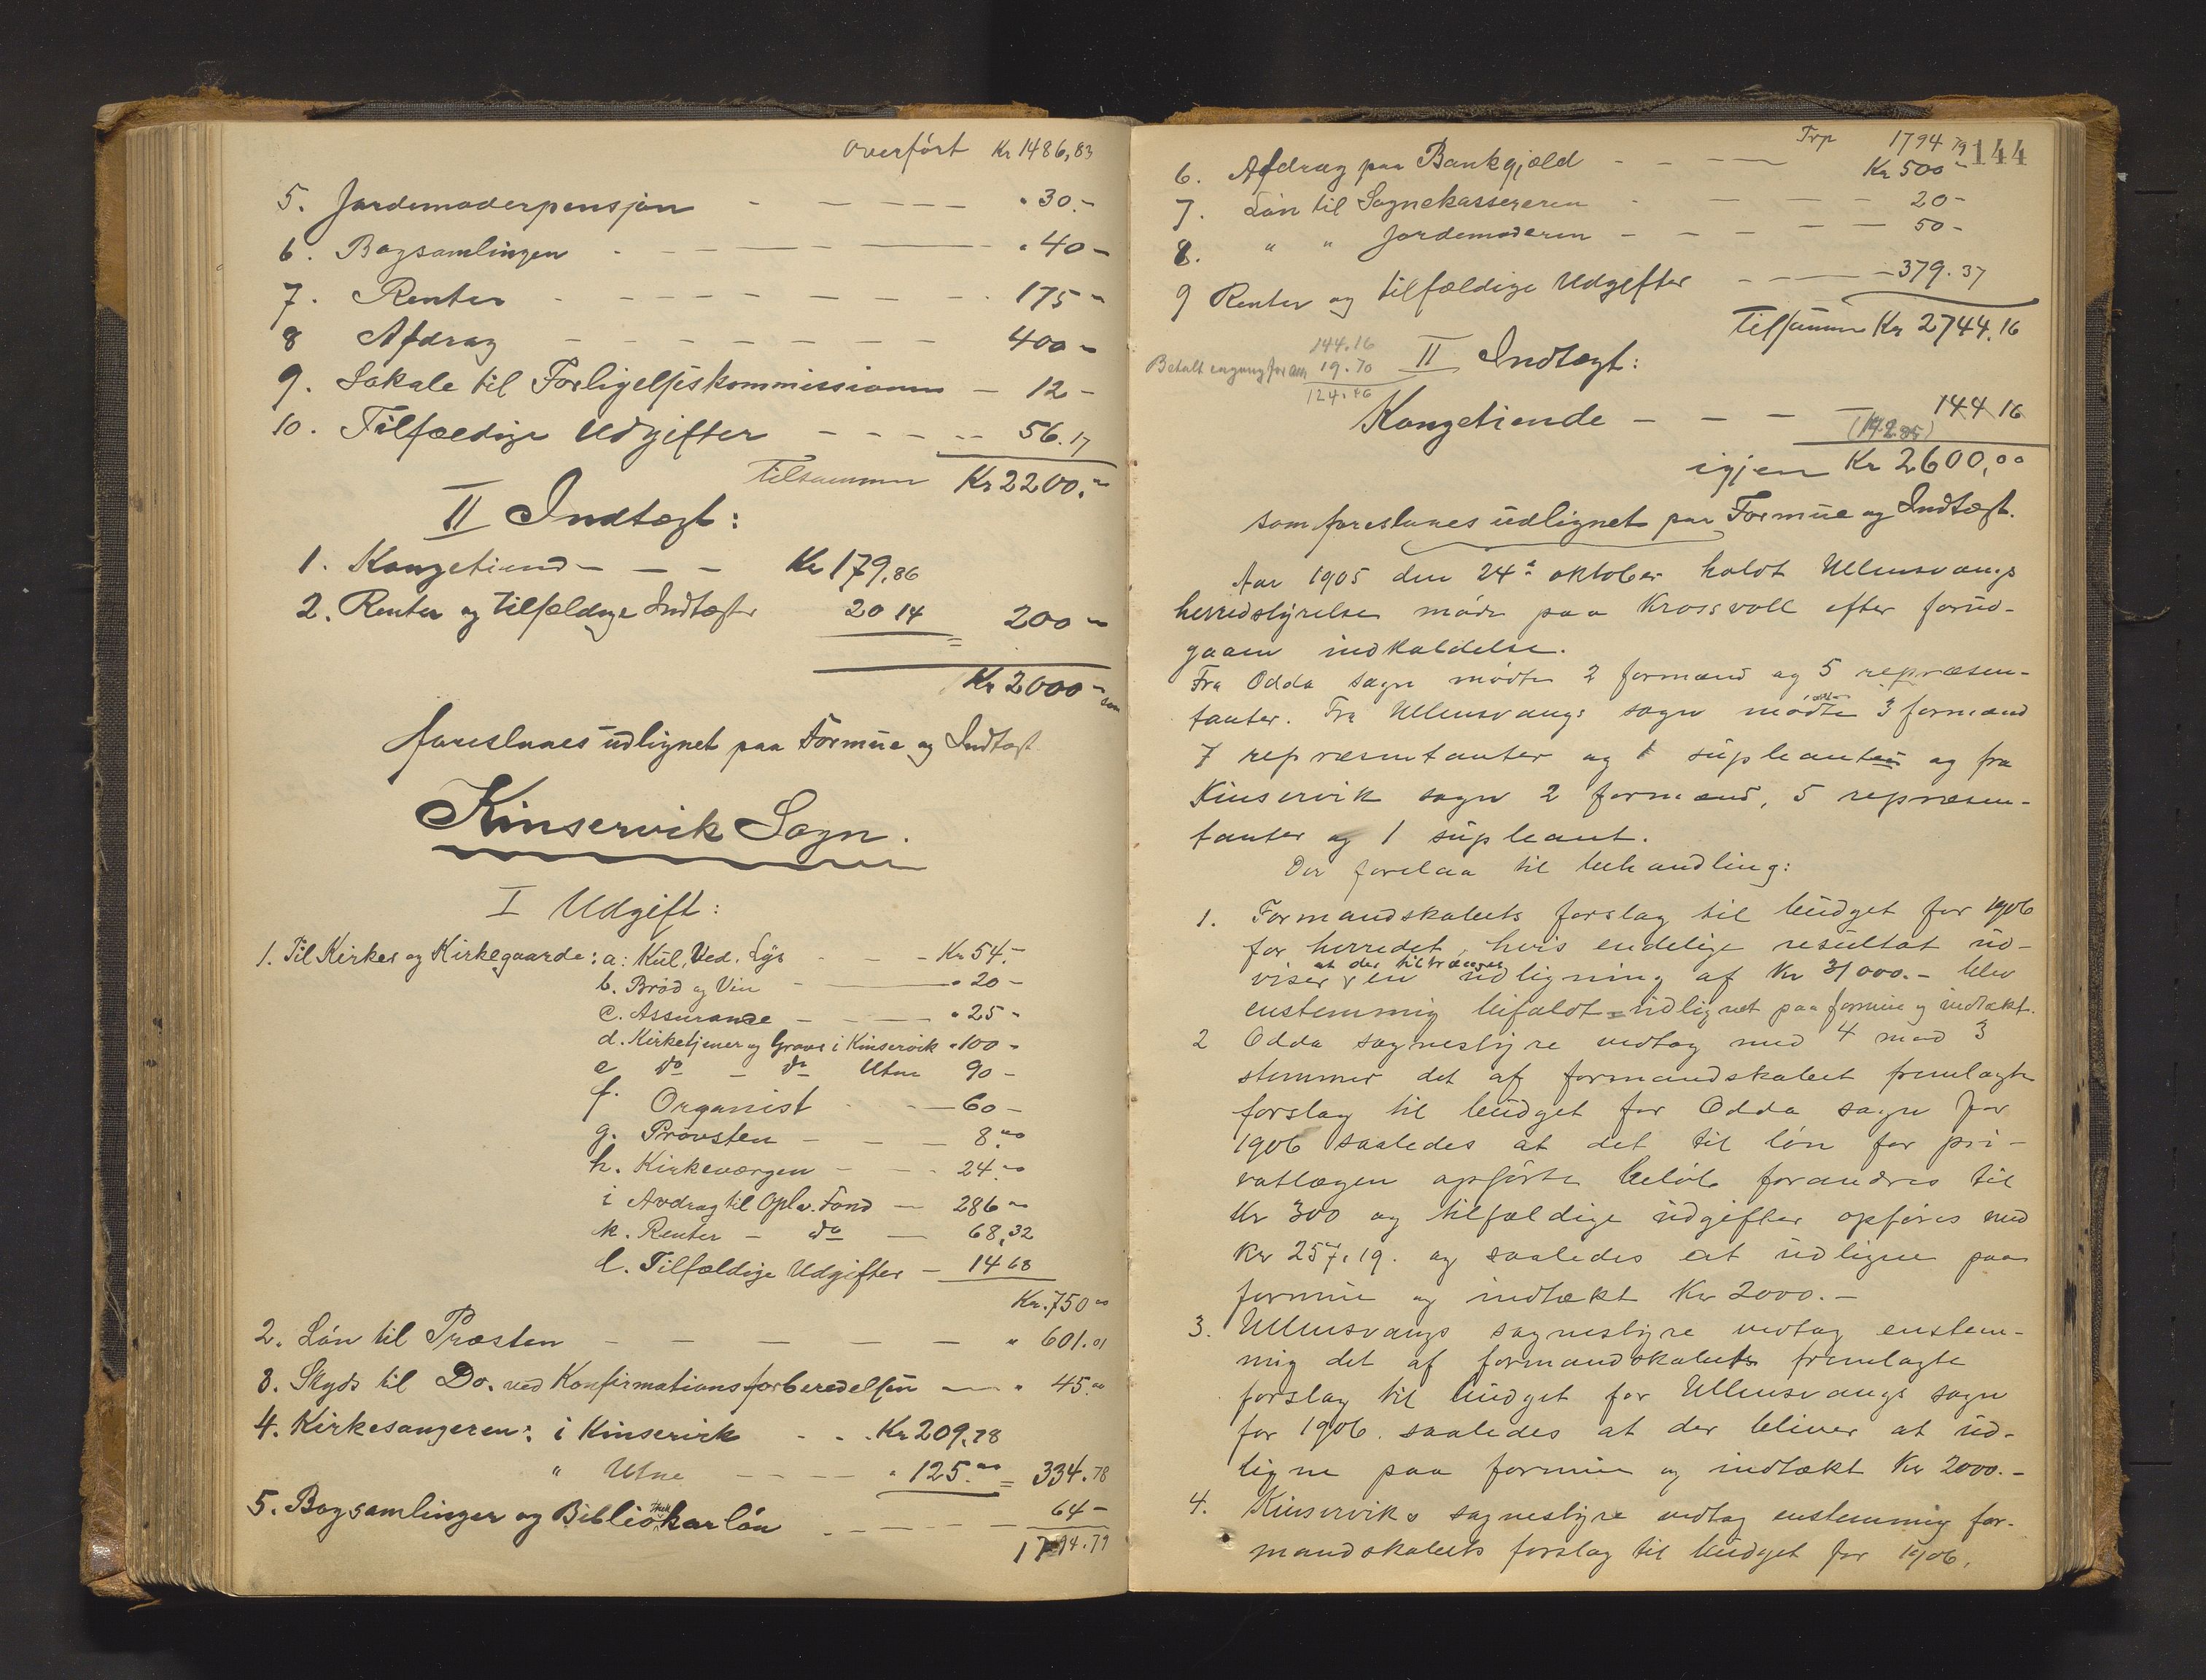 overført Kr 1486,83
5. Jordemoderpensjon - - - - - " 30.-
6. Bogsamlingen - - - " 40 -
7. Renter - - - - - - - - 175 -
8 Afdrag - - - - - - - 400 -
9. Lokale til Forligelseskommissionen - 12 -
10. Tilfældige Udgifter - - - - - 56.17
Tilsammen Kr 2200.-
II Indtægt:
1. Kongetiend - - - Kr 179,86
2. Renter og tilfældige Indtægter 20 14 = 200 -
Kr 2000 - som
foreslaaes udlignet paa Formue og Indtægt
Kinservik Sogn.
I Udgift:
1. Til Kirker og Kirkegaarde: a: Kul, Ved, Lys - - - Kr 54.-
b. Brød og Vin - " 20 -
c. Assurance - - - " 25 -
d. Kirketjener og Graver i Kinservik " 100 -
e do - do Utne 90 -
f. Organist - - 60 -
g. Provsten - - - 8.00
h. Kirkeværgen - - - 24.00
i Avdrag til Oplv. Fond - 286 00
k. Renter - do - 68,32
l. Tilfældige Udgifter - 14 68
Kr. 750 00
2. Løn til Præsten - - - - - " 601.01
3. Skyds til Do. ved Konfirmationsforberedelsen - - " 45.00
4. Kirkesangeren: i Kinservik - - - Kr 209,78
" Utne - - - - " 125.00 = 334.78
5. Bogsamlinger og Bibliothekarløn - - - - 64 -
1794.79
Trp 1794 79 144
6. Afdrag paa Bankgjæld - - - Kr 500 -
7. Løn til Sognekassereren - - - - - 20 -
8. " " Jordemoderen - - - - - 50 -
9 Renter og tilfældige Udgifter - - - 379.37
Tilsammen Kr 2744.16
144.16
Betalt engang for alle 19.70
124.46
II Indtægt:
Kongetiende - - - - 144 16
(142.85)
igjen Kr 2600,00
som foreslaaes udlignet paa Formue og Indtægt.
Aar 1905 den 24de oktober holdt Ullensvangs
herredstyrelse møde paa Krossvoll efter forud-
gaaen indkaldelse.
Fra Odda sogn mødte 2 formænd og 5 repræsen-
tanter. Fra Ullensvangs sogn mødte 3 formænd
7 repræsentanter og 1 supleant og fra
Kinservik sogn 2 formænd, 5 repræsen-
tanter og 1 supleant.
Der forelaa til behandling:
1. Formandskabets forslag til budget for 1906
for herredet, hvis endelige resultat ud-
viser at der tiltrænges en udligning af Kr 31000.- blev
enstemmig bifaldt udlignet paa formue og indtækt.
2 Odda sognestyre vedtog med 4 mod 3
stemmer det af formandskabet fremlagte
forslag til budget for Odda sogn for
1906 saaledes at det til løn for pri-
vatlægen opførte beløb forandres til
Kr 300 og tilfældige udgifter opføres med
Kr 257.19. og saaledes at udligne paa
formue og indtækt Kr 2000.-
3. Ullensvangs sognestyre vedtog enstem-
mig det af formandskabet fremlagte
forslag til budget for Ullensvangs sogn
for 1906 saaledes at der bliver at ud-
ligne paa formue og indtækt Kr 2000.-
4. Kinserviks sognestyre vedtog enstemmig for-
mandskabets forslag til budget for 1906,